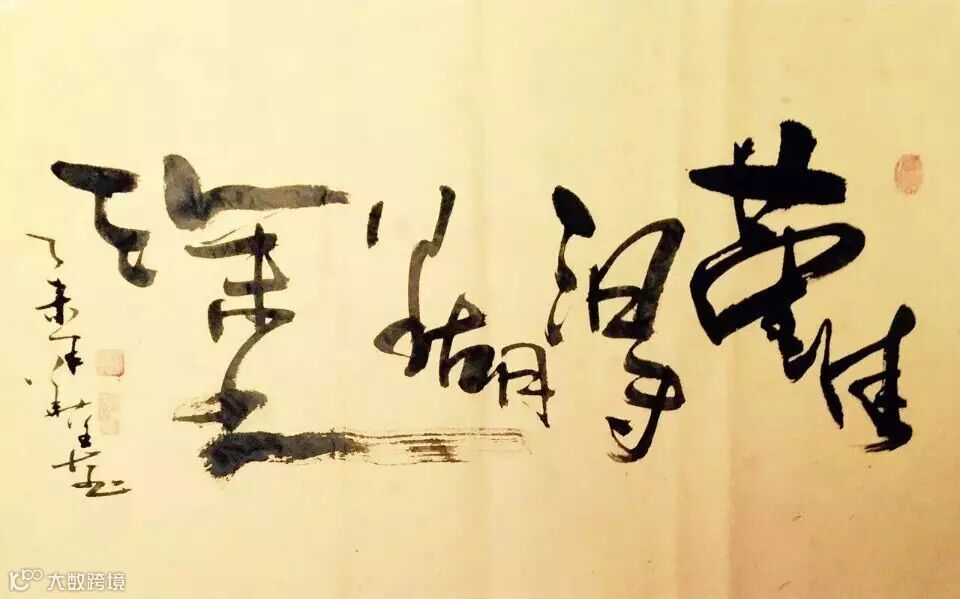 難得糊塗
乙未年
大数跨境